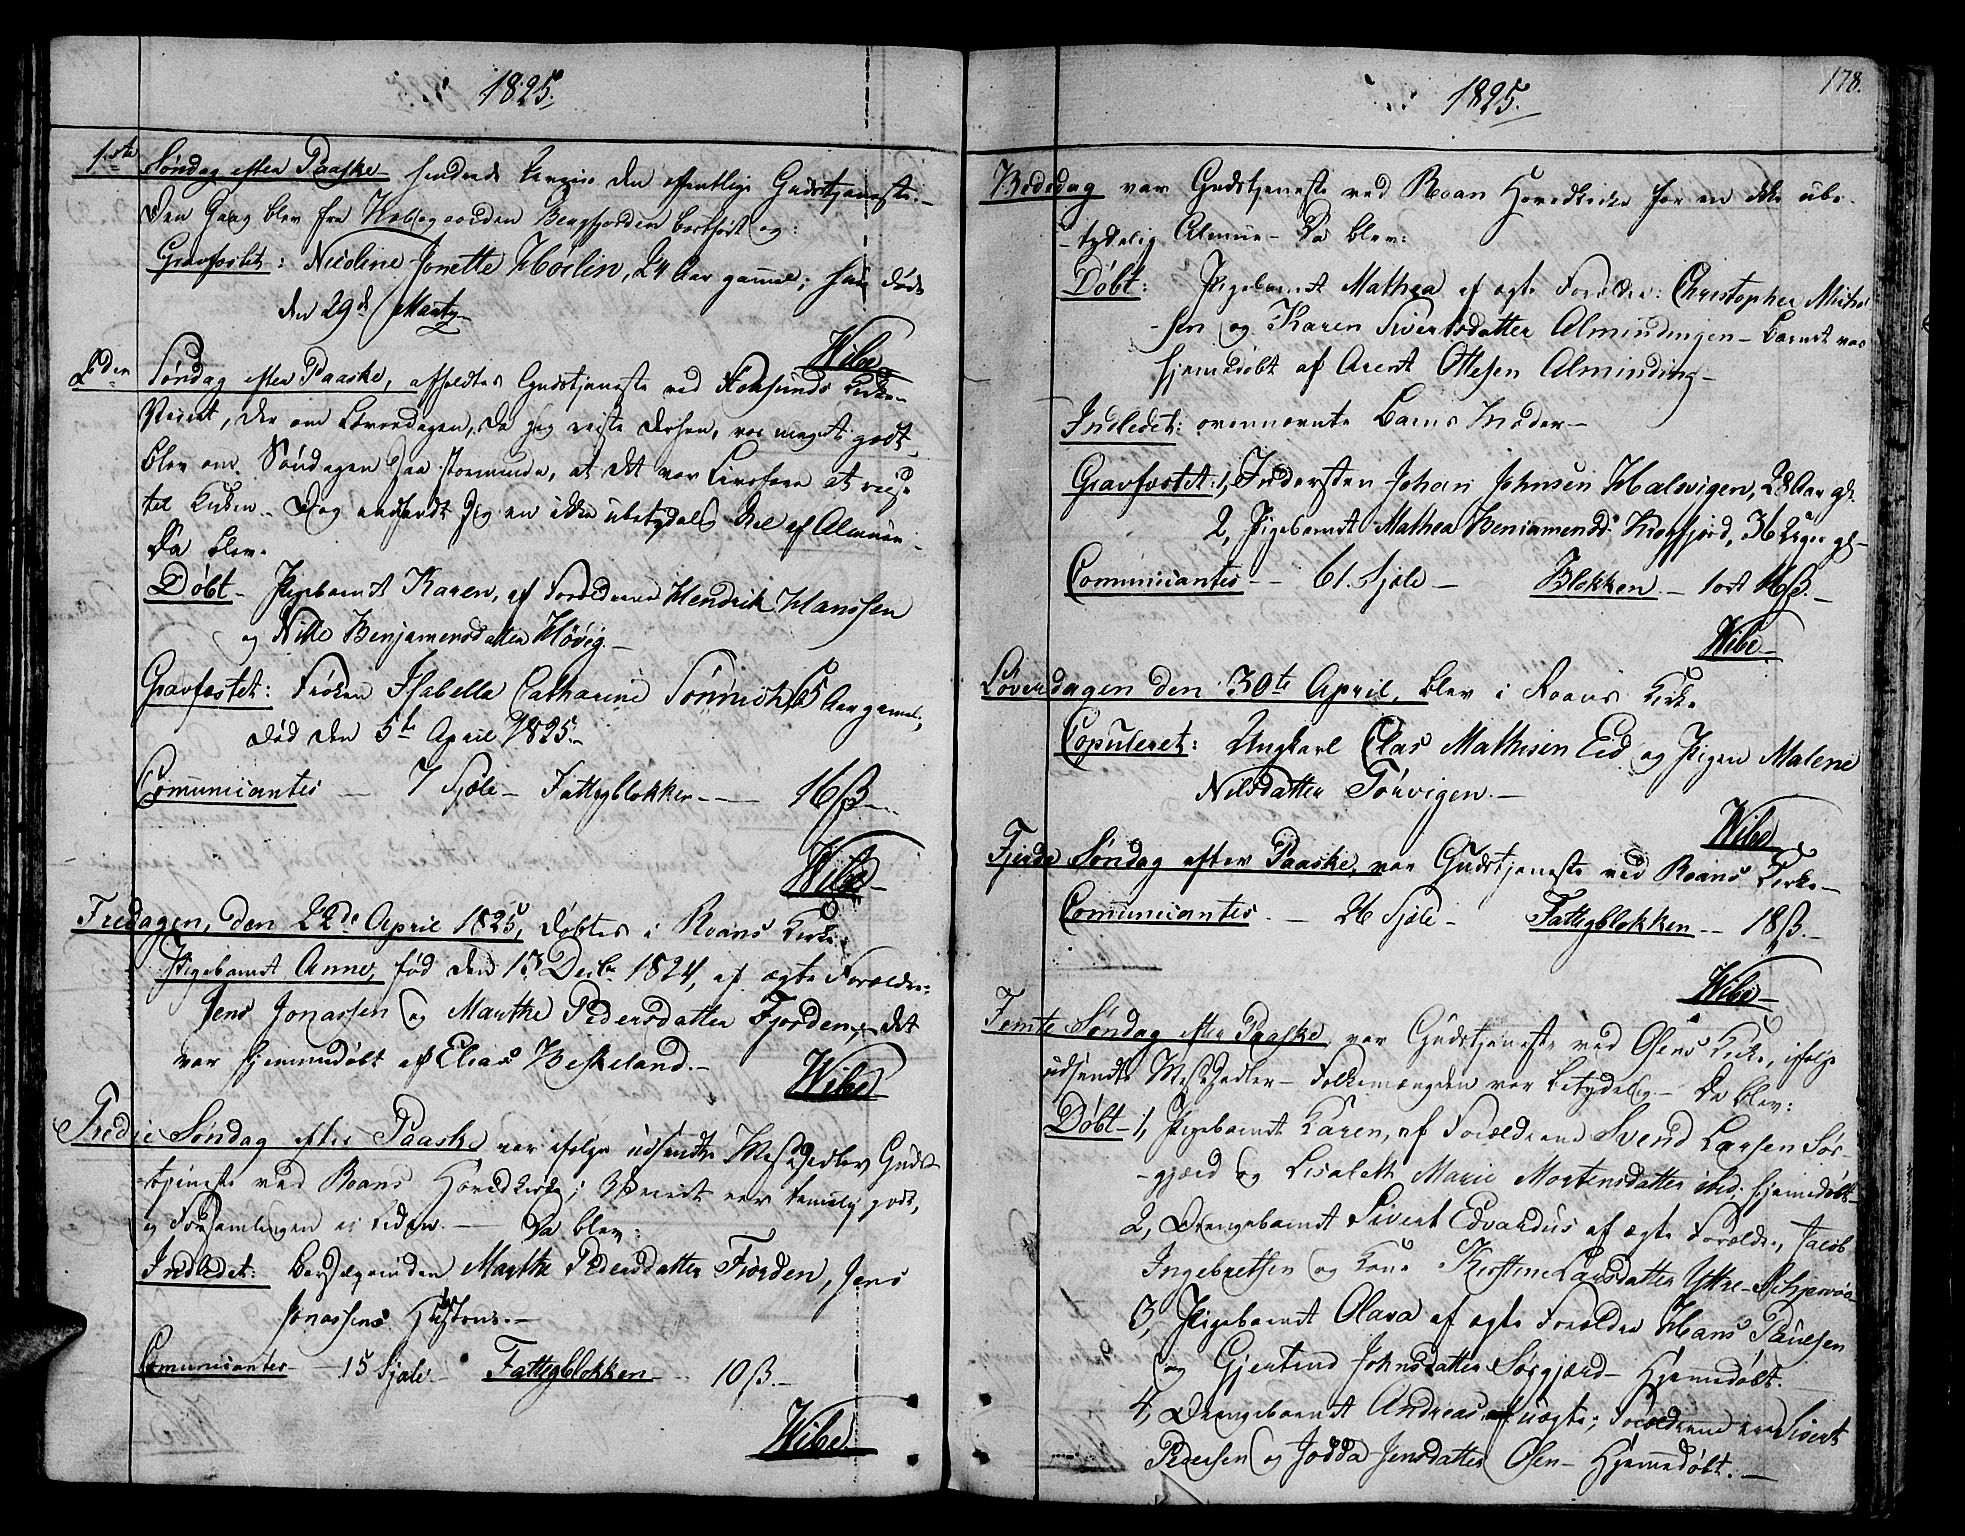 1825.
1ste Søndag efter Paaske hindrede Læ den offentlige Gudstjeneste.
Den Gang blev fra Bergfjorden bortført og:
Gravfæstet: Nicoline Jonette Hørlin, 24 Aar gammel; hun døde
den 29de Marty
Wibe
2den Søndag efter Paaske, afholdtes Gudstjeneste ved Stoksunds Kirke
Veiret, der om Løverdagen, da jeg reiste derhen, var meget godt
blev om Søndagen saa stormende, at det var Livsfare at reise
til Kirken. Dog jeg en ikke ubetydelig Deel af Almuen
Da blev.
Døbt - Pigebarnet Karen, af Forældrene Hendrik Hanssen
og Nille Benjamensdatter Høvig.
Gravfæstet: Frøken Isabella Catharine Sønnichs 65 Aar gammel;
død den 5te April 1825.
Communicantes - 7 Sjæle - Fattigblokken - 16 ß
Wibe
Fredagen, den 22de April 1825, døbtes i Roans Kirke:
Pigebarnet Anne, født den 13 Decbr 1824, af ægte Forældre:
Jens Jonassen og Marthe Pedersdatter Fjorden; det
var hjemmedøbt af Elias Beskeland.
Wibe
Tredie Søndag efter Paaske var ifølge udsendte Messesedler Guds-
tjeneste ved Roans Hovedkirke; Veiret var temmelig godt,
og Forsamlingen ei liden. Da blev:
Indledet: Marthe Pedersdatter Fiorden, Jens
Jonassens Hustrue.
Communicantes - 15 Sjæle - Fattigblokken - 10 ß.
Wibe
1825.
178.
Bededag var Gudstjeneste ved Roan Hovedkirke for en ikke ube-
tydelig Almue - Da blev:
Døbt: Pigebarnet Mathea af ægte Forældre: Christopher Michel-
sen og Karen Sivertsdatter Almindingen - Barnet var
hjemmedøbt af Arent Ottesen Alminding
Indledet: ovennævnte Barns Moder -
Gravfæstet: 1, Indersten Johan Johnsen Halsvigen, 28 Aar gl.
2, Pigebarnet Mathea Beniammensd: Hopfjord, 36 Uger gl.
Communicantes - 61. Sjæle - Blokken - 1 ort 16 ß.
Wibe
Løverdagen den 30te April, blev i Roans Kirke
Copuleret: Ungkarl Elas Mathisen Eid og Pigen Malene
Nilsdatter Tørvigen.
Wibe
Fjerde Søndag efter Paaske, var Gudstjeneste ved Roans Kirke
Communicantes. - 26 Sjæle - Fattigblokken - 18 ß.
Wibe
Femte Søndag efter Paaske, var Gudstjeneste ved Osens Kirke, ifølge
udsendte Messesedler - Folkemængden var betydelig - Da blev:
Døbt - 1, Pigebarnet Karen, af Forældrene Svend Larsen Sør-
gjærd og Lisabeth Marie Mortensdatter ibid; hjemmedøbt
2, Drengebarnet Sivert Edvardus af ægte Forældre, Jacob
Ingebretsen og Kone Kirsten Larsdatter Ytre-Skjervøe
3, Pigebarnet Olava af ægte Forældre Hans Paulsen
og Gjertrud Johnsdatter Sørgjærd - Hjemmedøbt.
4, Drengebarnet Andreas af uægte; Forældrene ere Sivert
Pedersen og Jodda Jensdatter Osen - Hjemmedøbt.